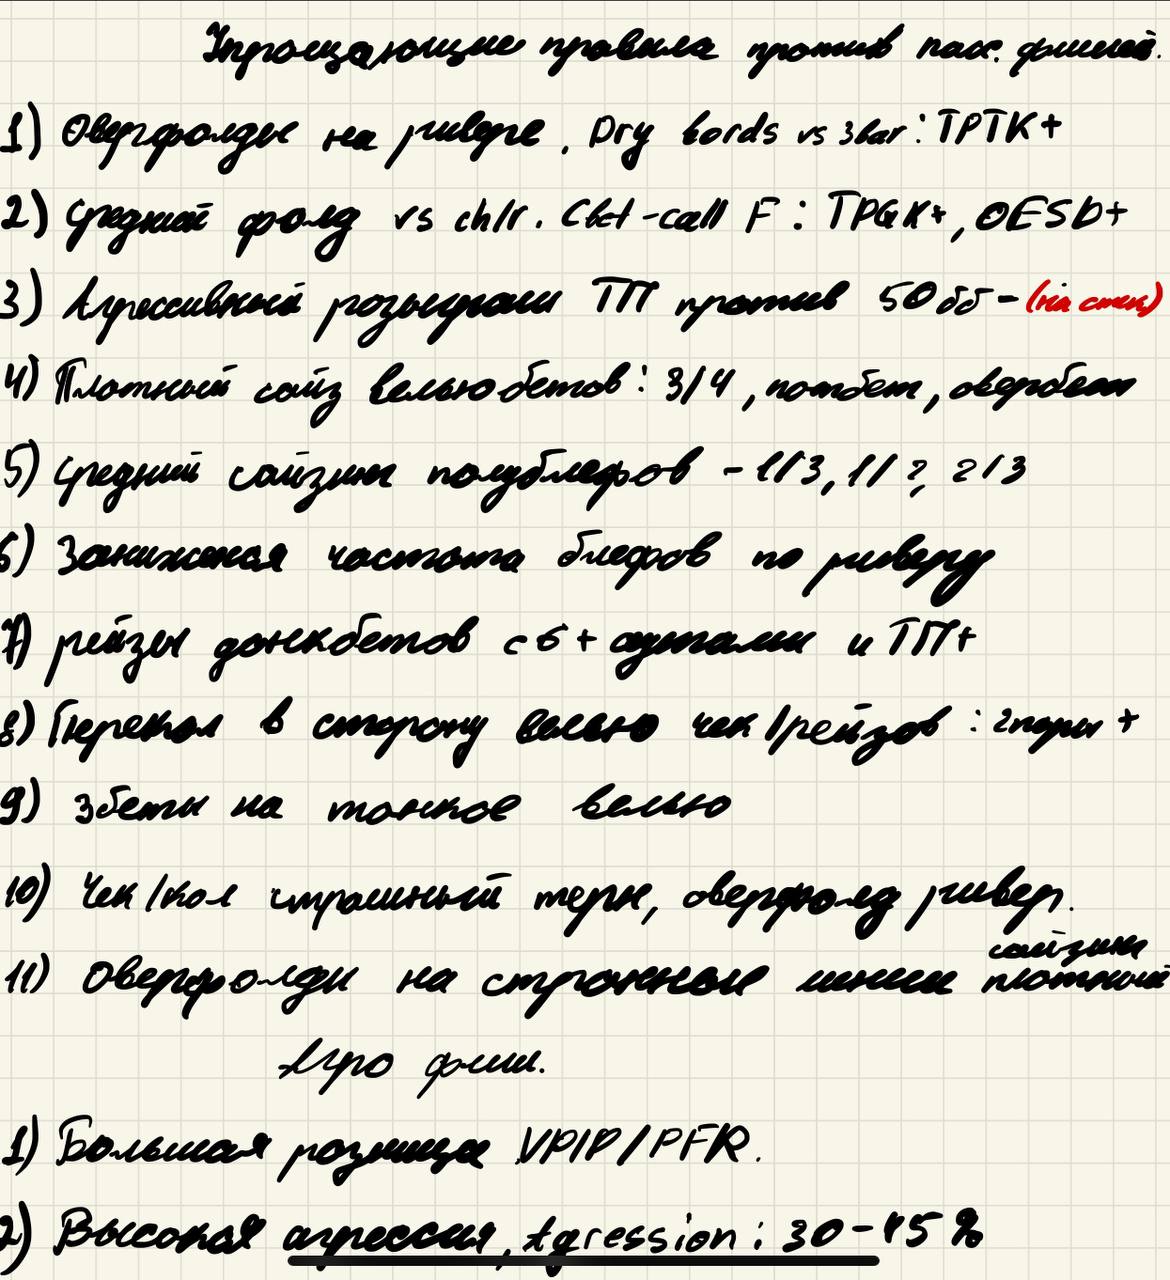 Упрощающие правила против пасс. фишей.
1) Оверфолды на ривере. Dry bords vs 3bar: TPTK+
2) Средний фолд vs ch/r. Cbet-call F: TPGK+, OESD+
3) Агрессивный розыгрыш ТП против 50бб - (на стек)
4) Плотный сайз вельюбетов: 3/4, потбет, овербет
5) Средний сайзинг полублефов - 1/3, 1/2, 2/3
6) Заниженая частота блефов по риверу
7) рейзы донкбетов с 6+ аутами и ТП+
8) Перекол в сторону велью чек/рейзов: 2пары+
9) 3беты на тонкое велью
10) Чек/кол страшный терн, оверфолд ривер.
сайзинг
11) Оверфолды на странные линии плотный
Агро фиш.
1) Большая разница VPIP/PFR.
2) Высокая агрессия, Agression: 30-45%